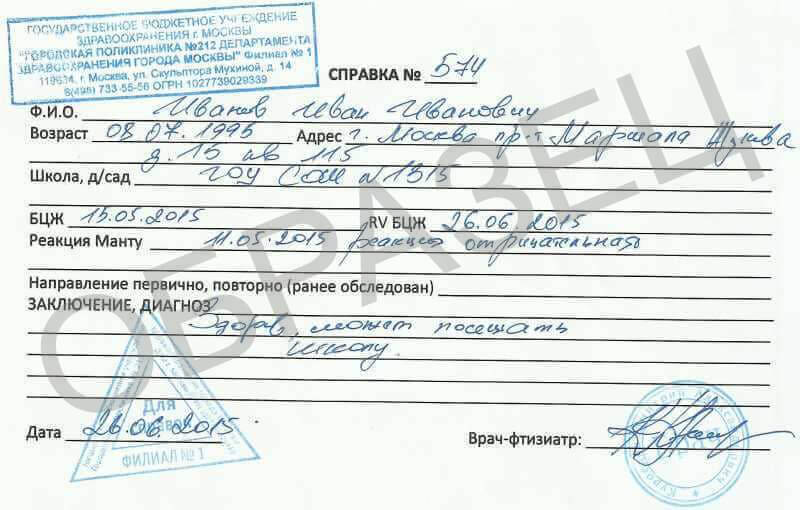 ГОСУДАРСТВЕННОЕ БЮДЖЕТНОЕ УЧРЕЖДЕНИЕ
ЗДРАВООХРАНЕНИЯ г. МОСКВЫ
"ГОРОДСКАЯ ПОЛИКЛИНИКА №212 ДЕПАРТАМЕНТА
ЗДРАВООХРАНЕНИЯ ГОРОДА МОСКВЫ" Филиал № 1
119634, г. Москва, ул. Скульптора Мухиной, д. 14
8(495) 733-55-56 ОГРН 1027739029339
СПРАВКА № 574
Ф.И.О. Иванов Иван Иванович
Возраст 08.07.1995 Адрес г. Москва пр-т Маршала Жукова
д. 15 кв 115
Школа, д/сад ГОУ СОШ №1315
БЦЖ 15.05.2015 RV БЦЖ 26.06.2015
Реакция Манту 11.05.2015 реакция отрицательная
Направление первично, повторно (ранее обследован)
ЗАКЛЮЧЕНИЕ, ДИАГНОЗ
Здоров, может посещать
школу.
ОБРАЗЕЦ
Для
справок
ФИЛИАЛ №1
Дата 26.06.2015
Врач-фтизиатр: